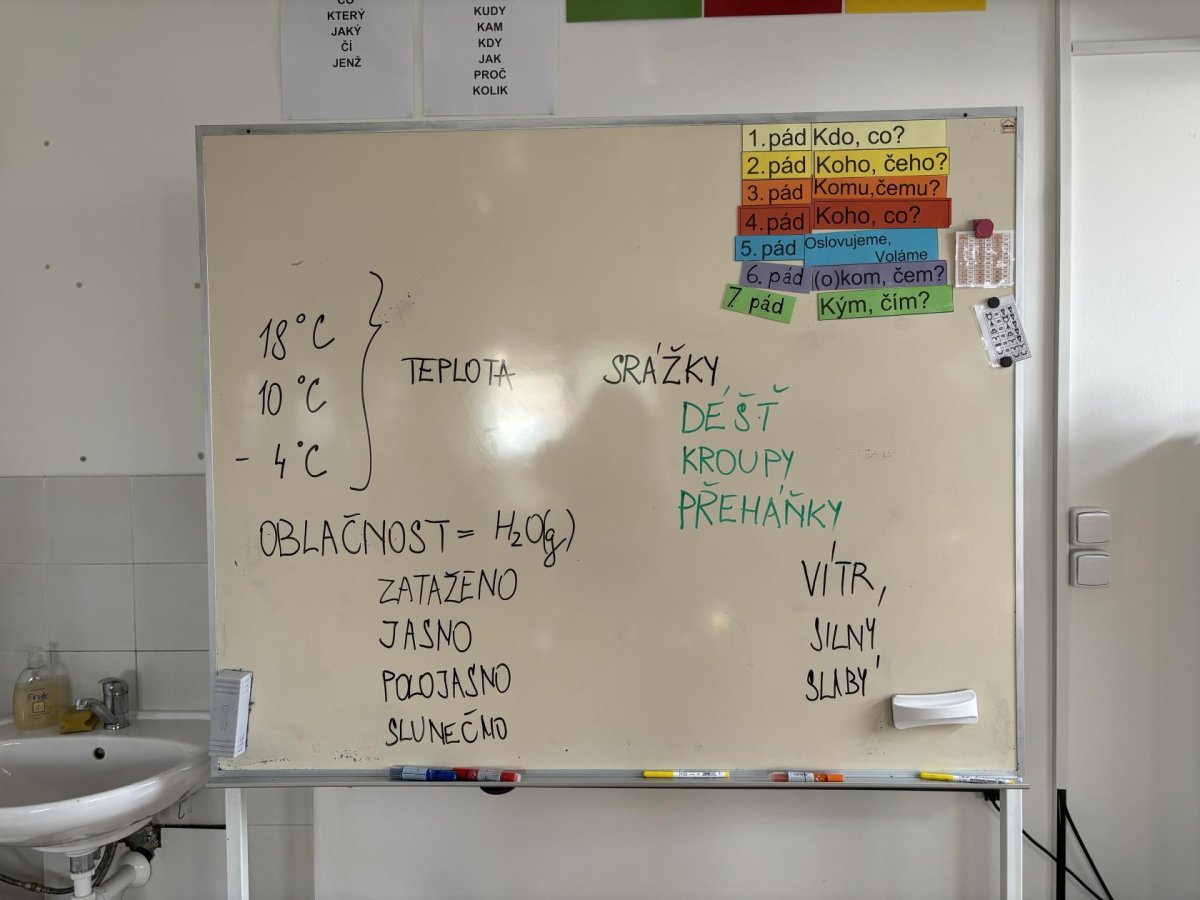 KTERÝ
JAKÝ
ČÍ
JENŽ
KUDY
KAM
KDY
JAK
PROČ
KOLIK
1.pád Kdo, co?
2.pád Koho, čeho?
3.pád Komu,čemu?
4.pád Koho, co?
5.pád Oslovujeme,
Voláme
6.pád (o)kom, čem?
7. pád Kým, čím?
18°C
10°C
- 4°C
TEPLOTA
SRÁŽKY
DÉŠŤ
KROUPY
PŘEHÁŇKY
OBLAČNOST = H₂O(g)
ZATAŽENO
JASNO
POLOJASNO
SLUNEČNO
VÍTR,
SILNÝ
SLABÝ